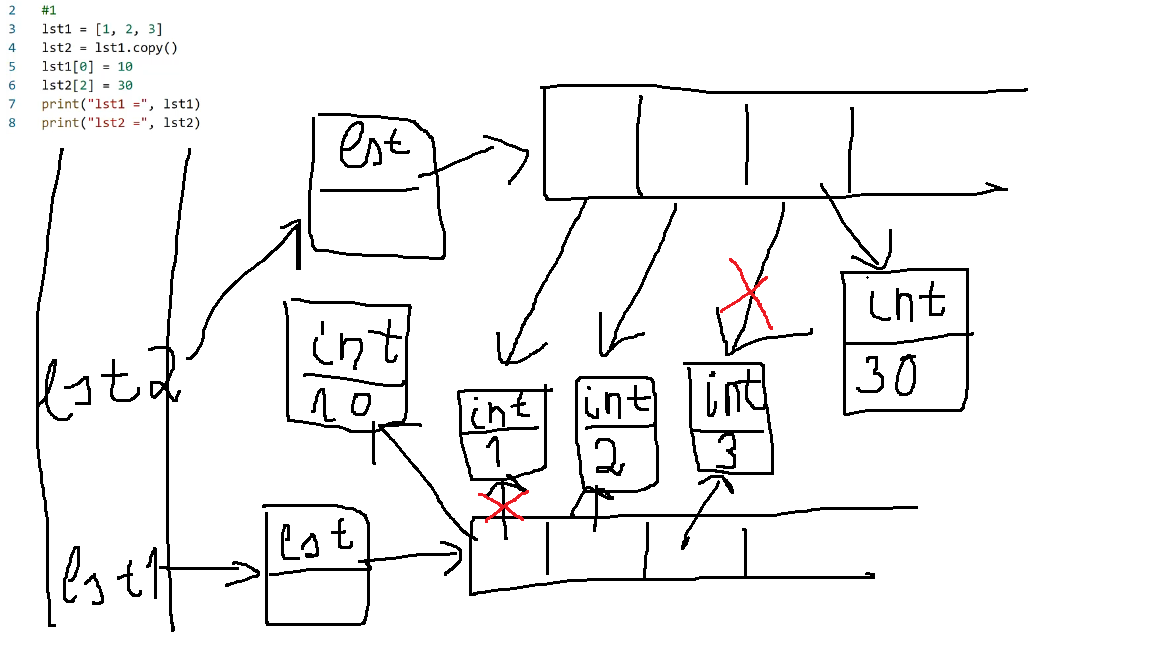 2 #1
3 lst1 = [1, 2, 3]
4 lst2 = lst1.copy()
5 lst1[0] = 10
6 lst2[2] = 30
7 print("lst1 =", lst1)
8 print("lst2 =", lst2)
lst
int
30
int
10
lst2
int
1
int
2
int
3
lst
lst1